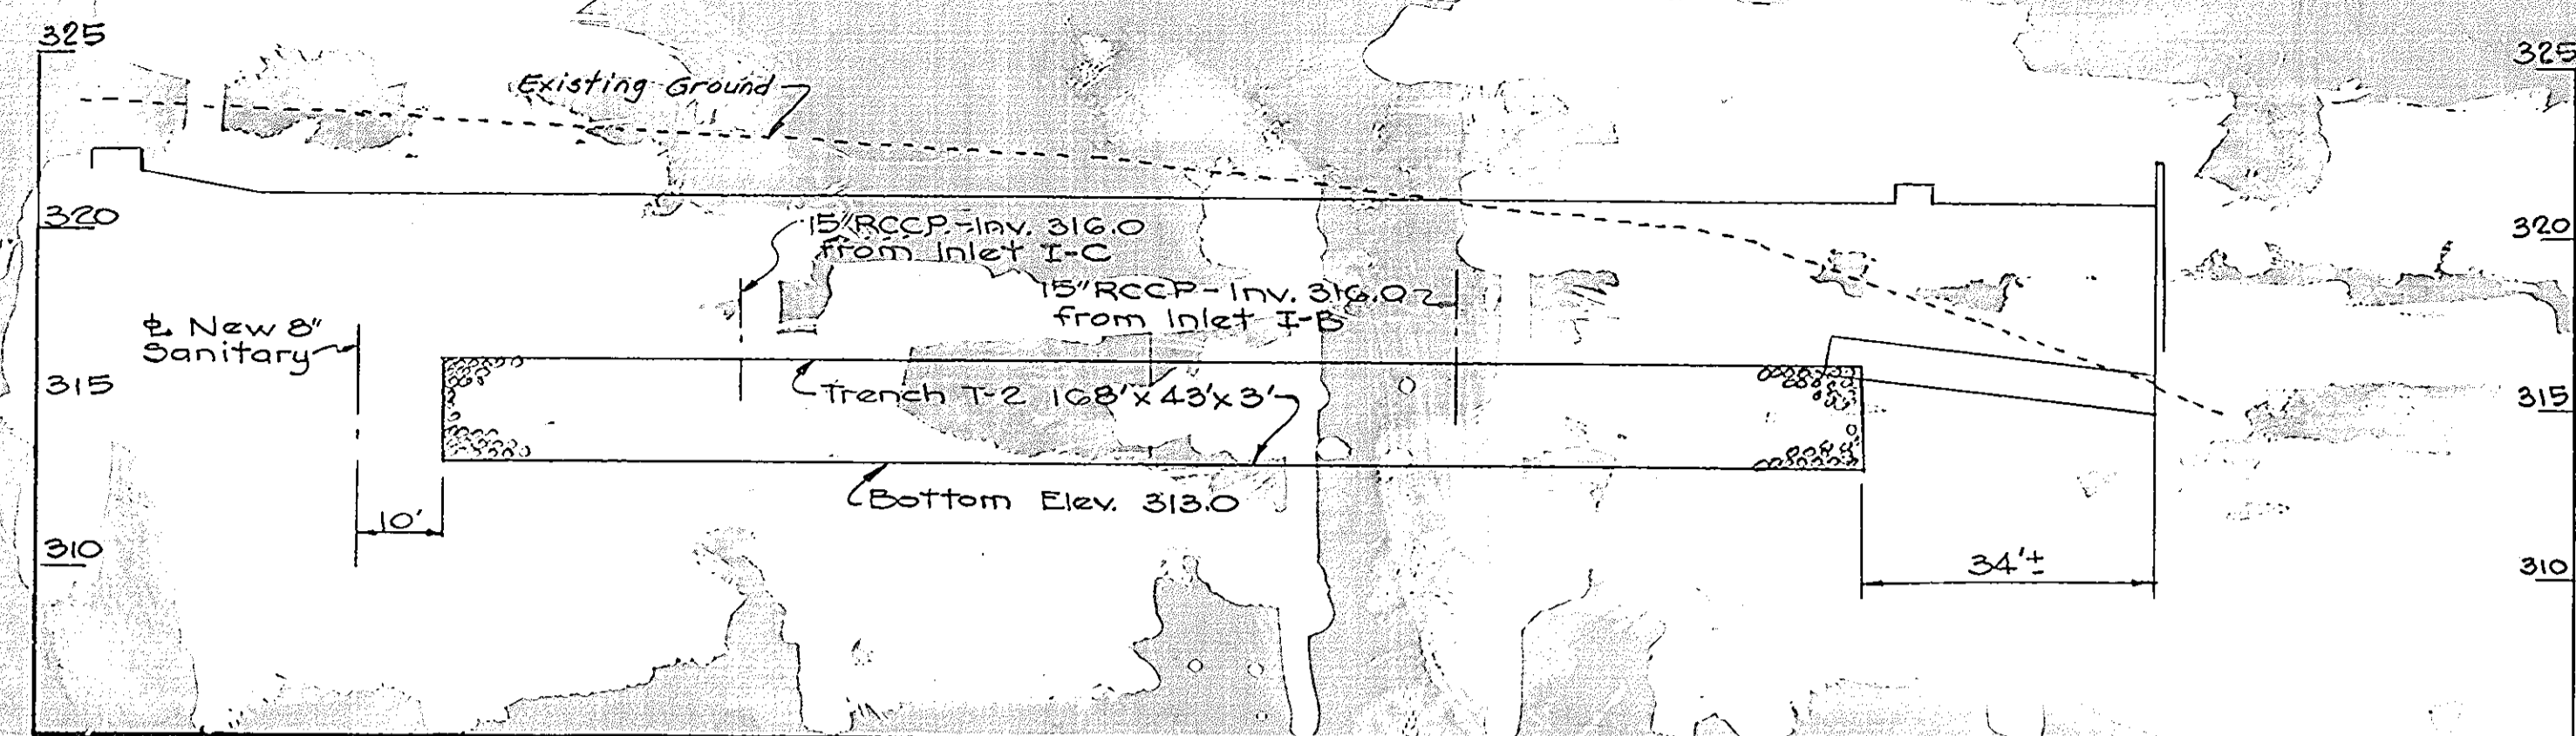 325
325
Existing Ground
320
320
15"RCCP-Inv. 316.0
from Inlet I-C
15"RCCP-Inv. 316.0
from Inlet I-B
℄ New 8"
Sanitary
315
315
Trench T-2 168'x43'x3'
Bottom Elev. 313.0
10'
310
310
34'±